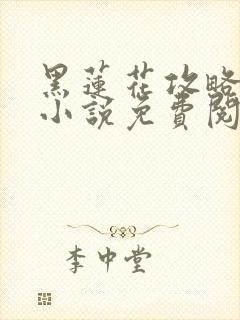 黑蓮花攻略
小説免費閱
李中堂